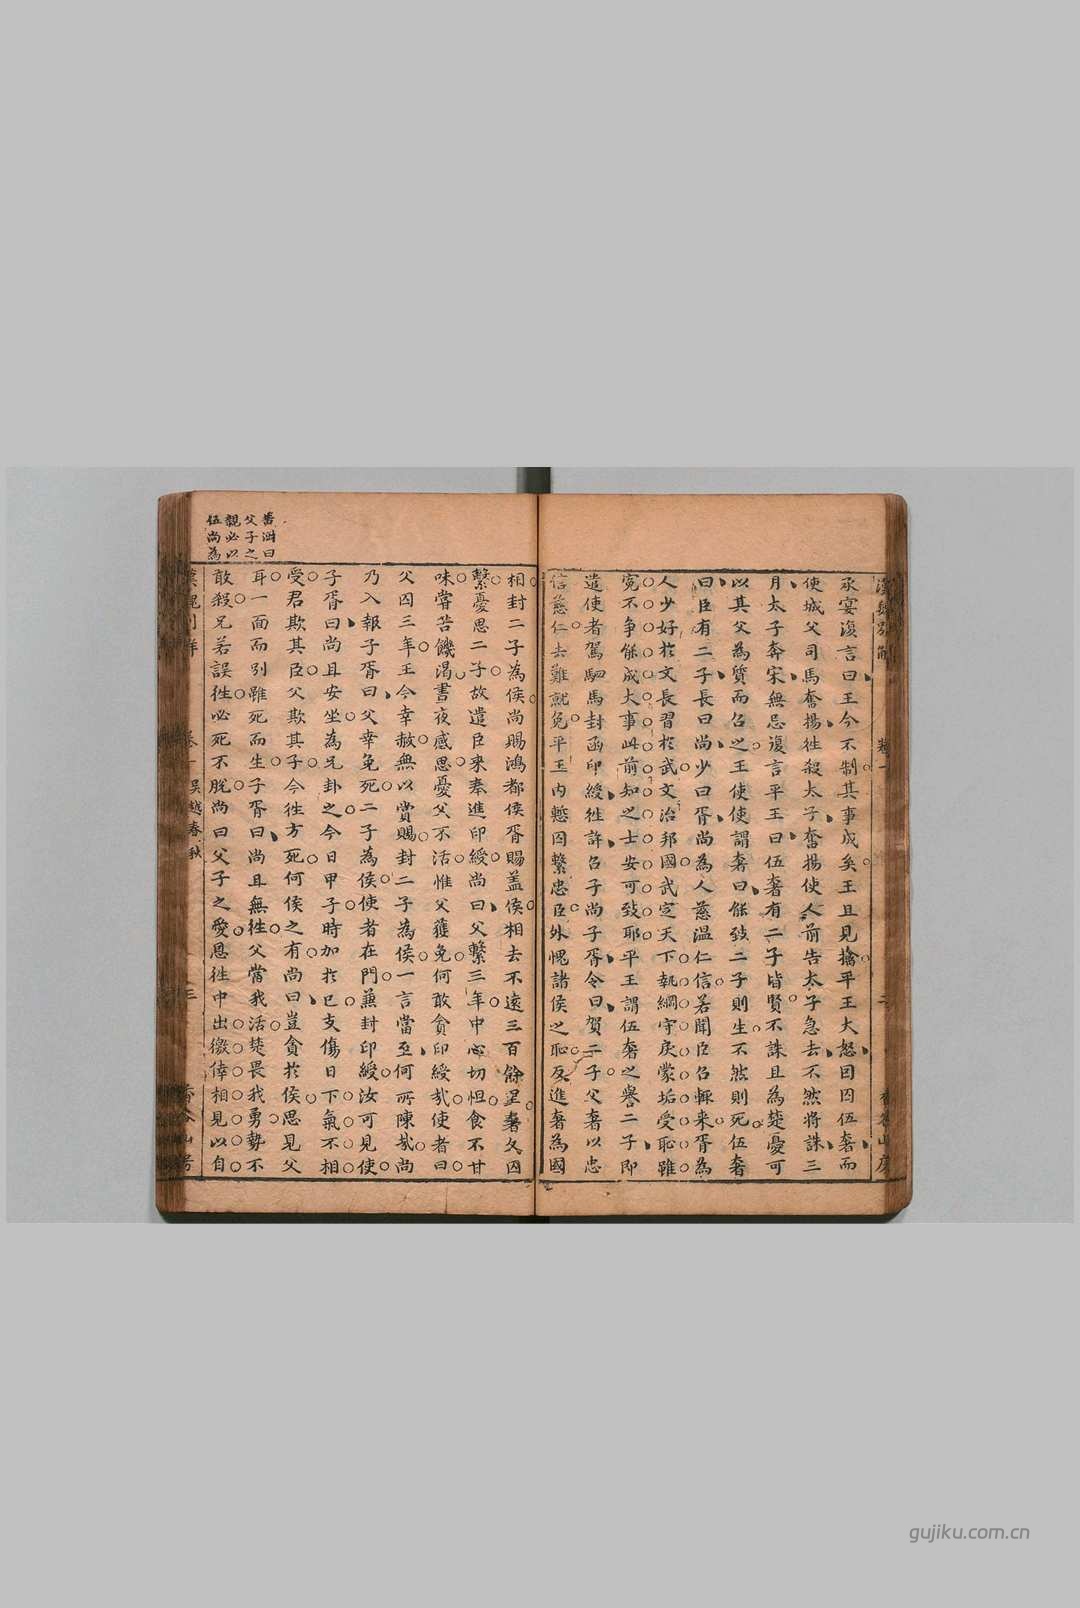 承宴復言曰王今不制其事成矣王且見擒平王大怒因囚伍奢而
使城父司馬奮揚徃殺太子奮揚使人前告太子急去不然將誅三
月太子奔宋無忌復言平王曰伍奢有二子皆賢不誅且為楚憂可
以其父為質而召之王使使謂奢曰能致二子則生不然則死伍奢
曰臣有二子長曰尚少曰胥尚為人慈温仁信若聞臣召輒来胥為
人少好於文長習於武文治邦國武定天下執綱守戾蒙垢受恥雖
寃不争能成大事此前知之士安可致耶平王謂伍奢之譽二子即
遣使者駕駟馬封函印綬徃許召子尚子胥令曰賀二子父奢以忠
信慈仁去難就免平王内慙囚繫忠臣外愧諸侯之恥反進奢為國
相封二子為侯尚賜鴻都侯胥賜盖侯相去不遠三百餘里奢久囚
繫憂思二子故遣臣来奉進印綬尚曰父繫三年中心切怛食不甘
味嘗苦饑渴晝夜感思憂父不活惟父獲免何敢貪印綬哉使者曰
父囚三年王今幸赦無以賞賜封二子為侯一言當至何所陳哉尚
乃入報子胥曰父幸免死二子為侯使者在門兼封印綬汝可見使
子胥曰尚且安坐為兄卦之今日甲子時加於巳支傷日下氣不相
受君欺其臣父欺其子今徃方死何侯之有尚曰豈貪於侯思見父
耳一面而别雖死而生子胥曰尚且無徃父當我活楚畏我勇勢不
敢殺兄若誤徃必死不脱尚曰父子之愛恩徃中出徼倖相見以自
卷一 吳越春秋
三
香谷山房
曰
父子之
親必以
伍尚為
gujiku.com.cn